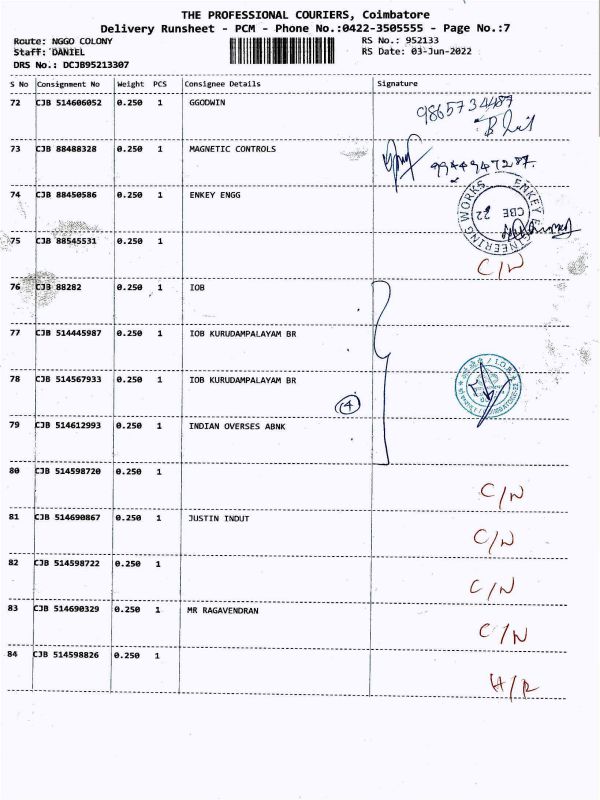 THE PROFESSIONAL COURIERS, Coimbatore
Delivery Runsheet - PCM - Phone No.:0422-3505555 - Page No.:7
Route: NGGO COLONY RS No.: 952133
Staff: DANIEL RS Date: 03-Jun-2022
DRS No.: DCJB95213307
S No Consignment No Weight PCS Consignee Details Signature
72 CJB 514606052 0.250 1 GGODWIN
9865734487
73 CJB 88488328 0.250 1 MAGNETIC CONTROLS
9944947287.
74 CJB 88450586 0.250 1 ENKEY ENGG
ENKEY ENGINEERING WORKS
CBE 22
75 CJB 88545531 0.250 1
C/N
76 CJB 88282 0.250 1 IOB
77 CJB 514445987 0.250 1 IOB KURUDAMPALAYAM BR
78 CJB 514567933 0.250 1 IOB KURUDAMPALAYAM BR
4
79 CJB 514612993 0.250 1 INDIAN OVERSES ABNK
80 CJB 514598720 0.250 1
C/N
81 CJB 514690867 0.250 1 JUSTIN INDUT
C/N
82 CJB 514598722 0.250 1
C/N
83 CJB 514690329 0.250 1 MR RAGAVENDRAN
C/N
84 CJB 514598826 0.250 1
H/R